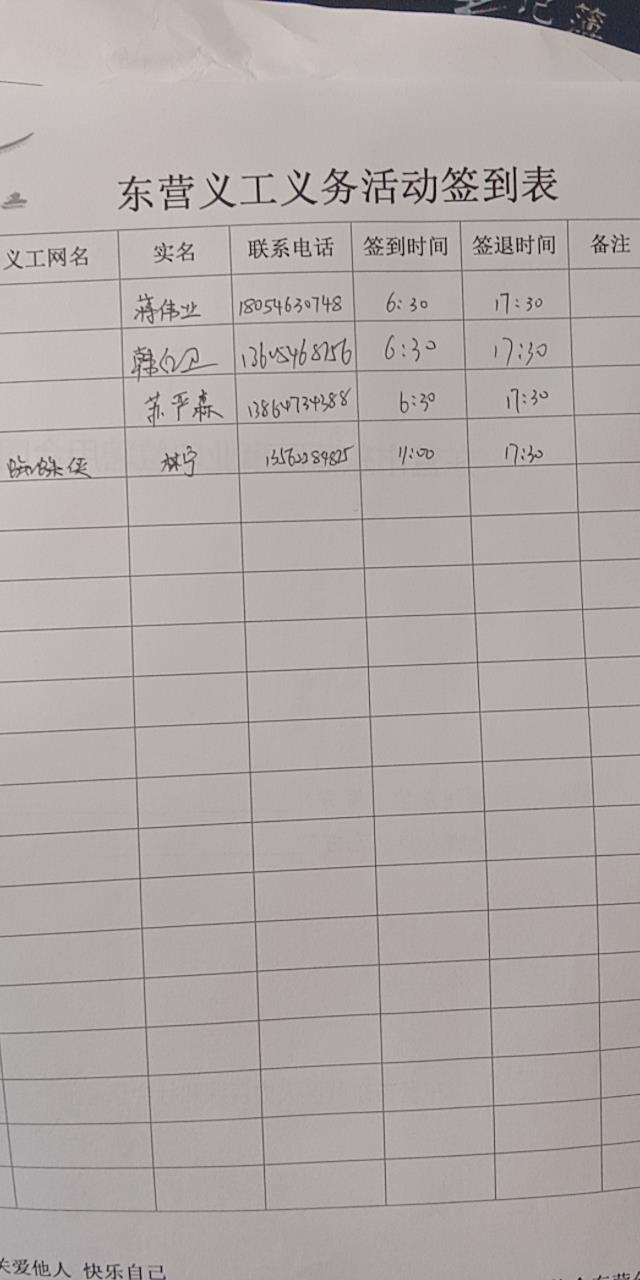 记 簿
东营义工义务活动签到表
义工网名 实名 联系电话 签到时间 签退时间 备注
蒋伟业 18054630748 6:30 17:30
韩 13605468756 6:30 17:30
苏严森 13864734388 6:30 17:30
蜘蛛侠 林宁 11:00 17:30
关爱他人 快乐自己